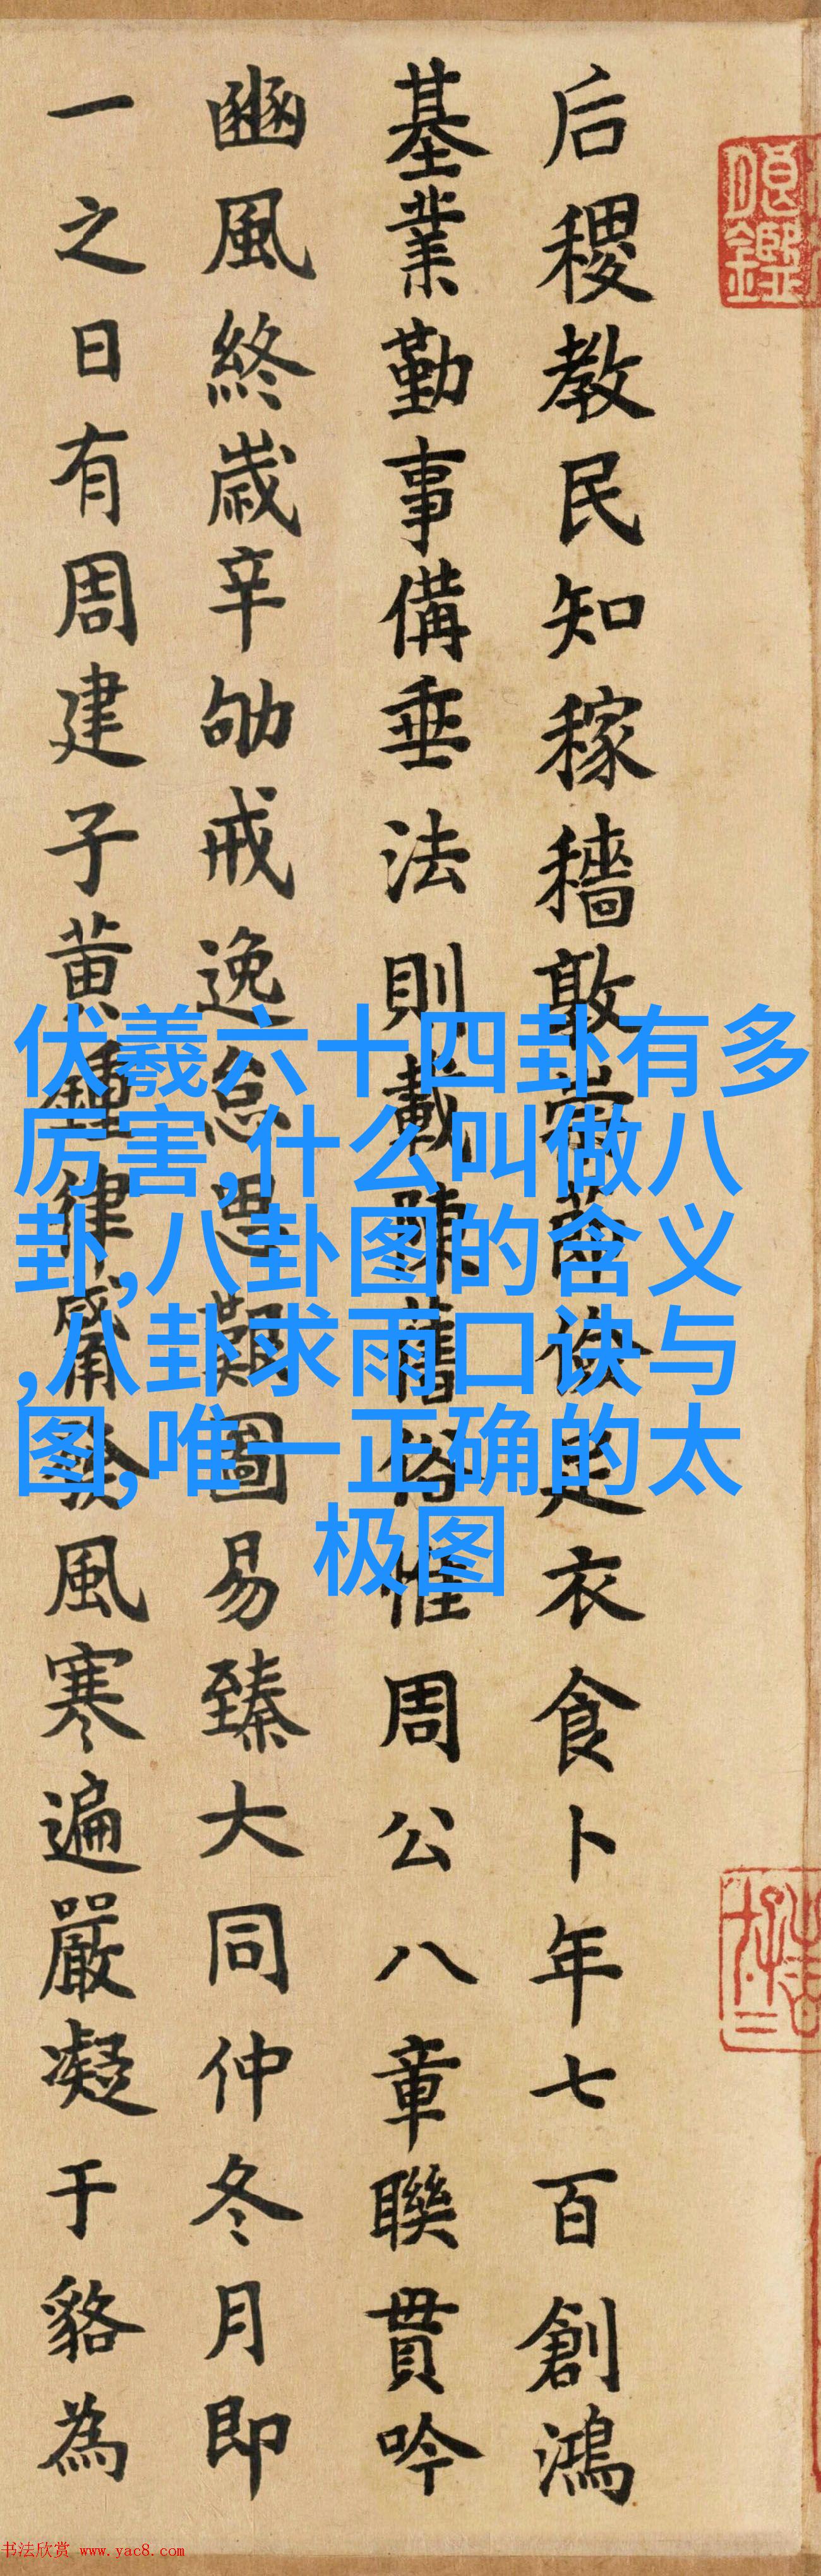 后稷教民知稼穡敦崇節儉足衣食卜年七百創鴻
基業勤事備垂法則載陳舊俗惟周公八章聯貫吟
豳風終歲辛劬戒逸怠思艱圖易臻大同仲冬月即
一之日有周建子黃鍾律觱發風寒遍嚴凝于貉為
伏羲六十四卦有多
厉害,什么叫做八
卦,八卦图的含义
,八卦求雨口诀与
图,唯一正确的太
极图
书法欣赏 www.yac8.com